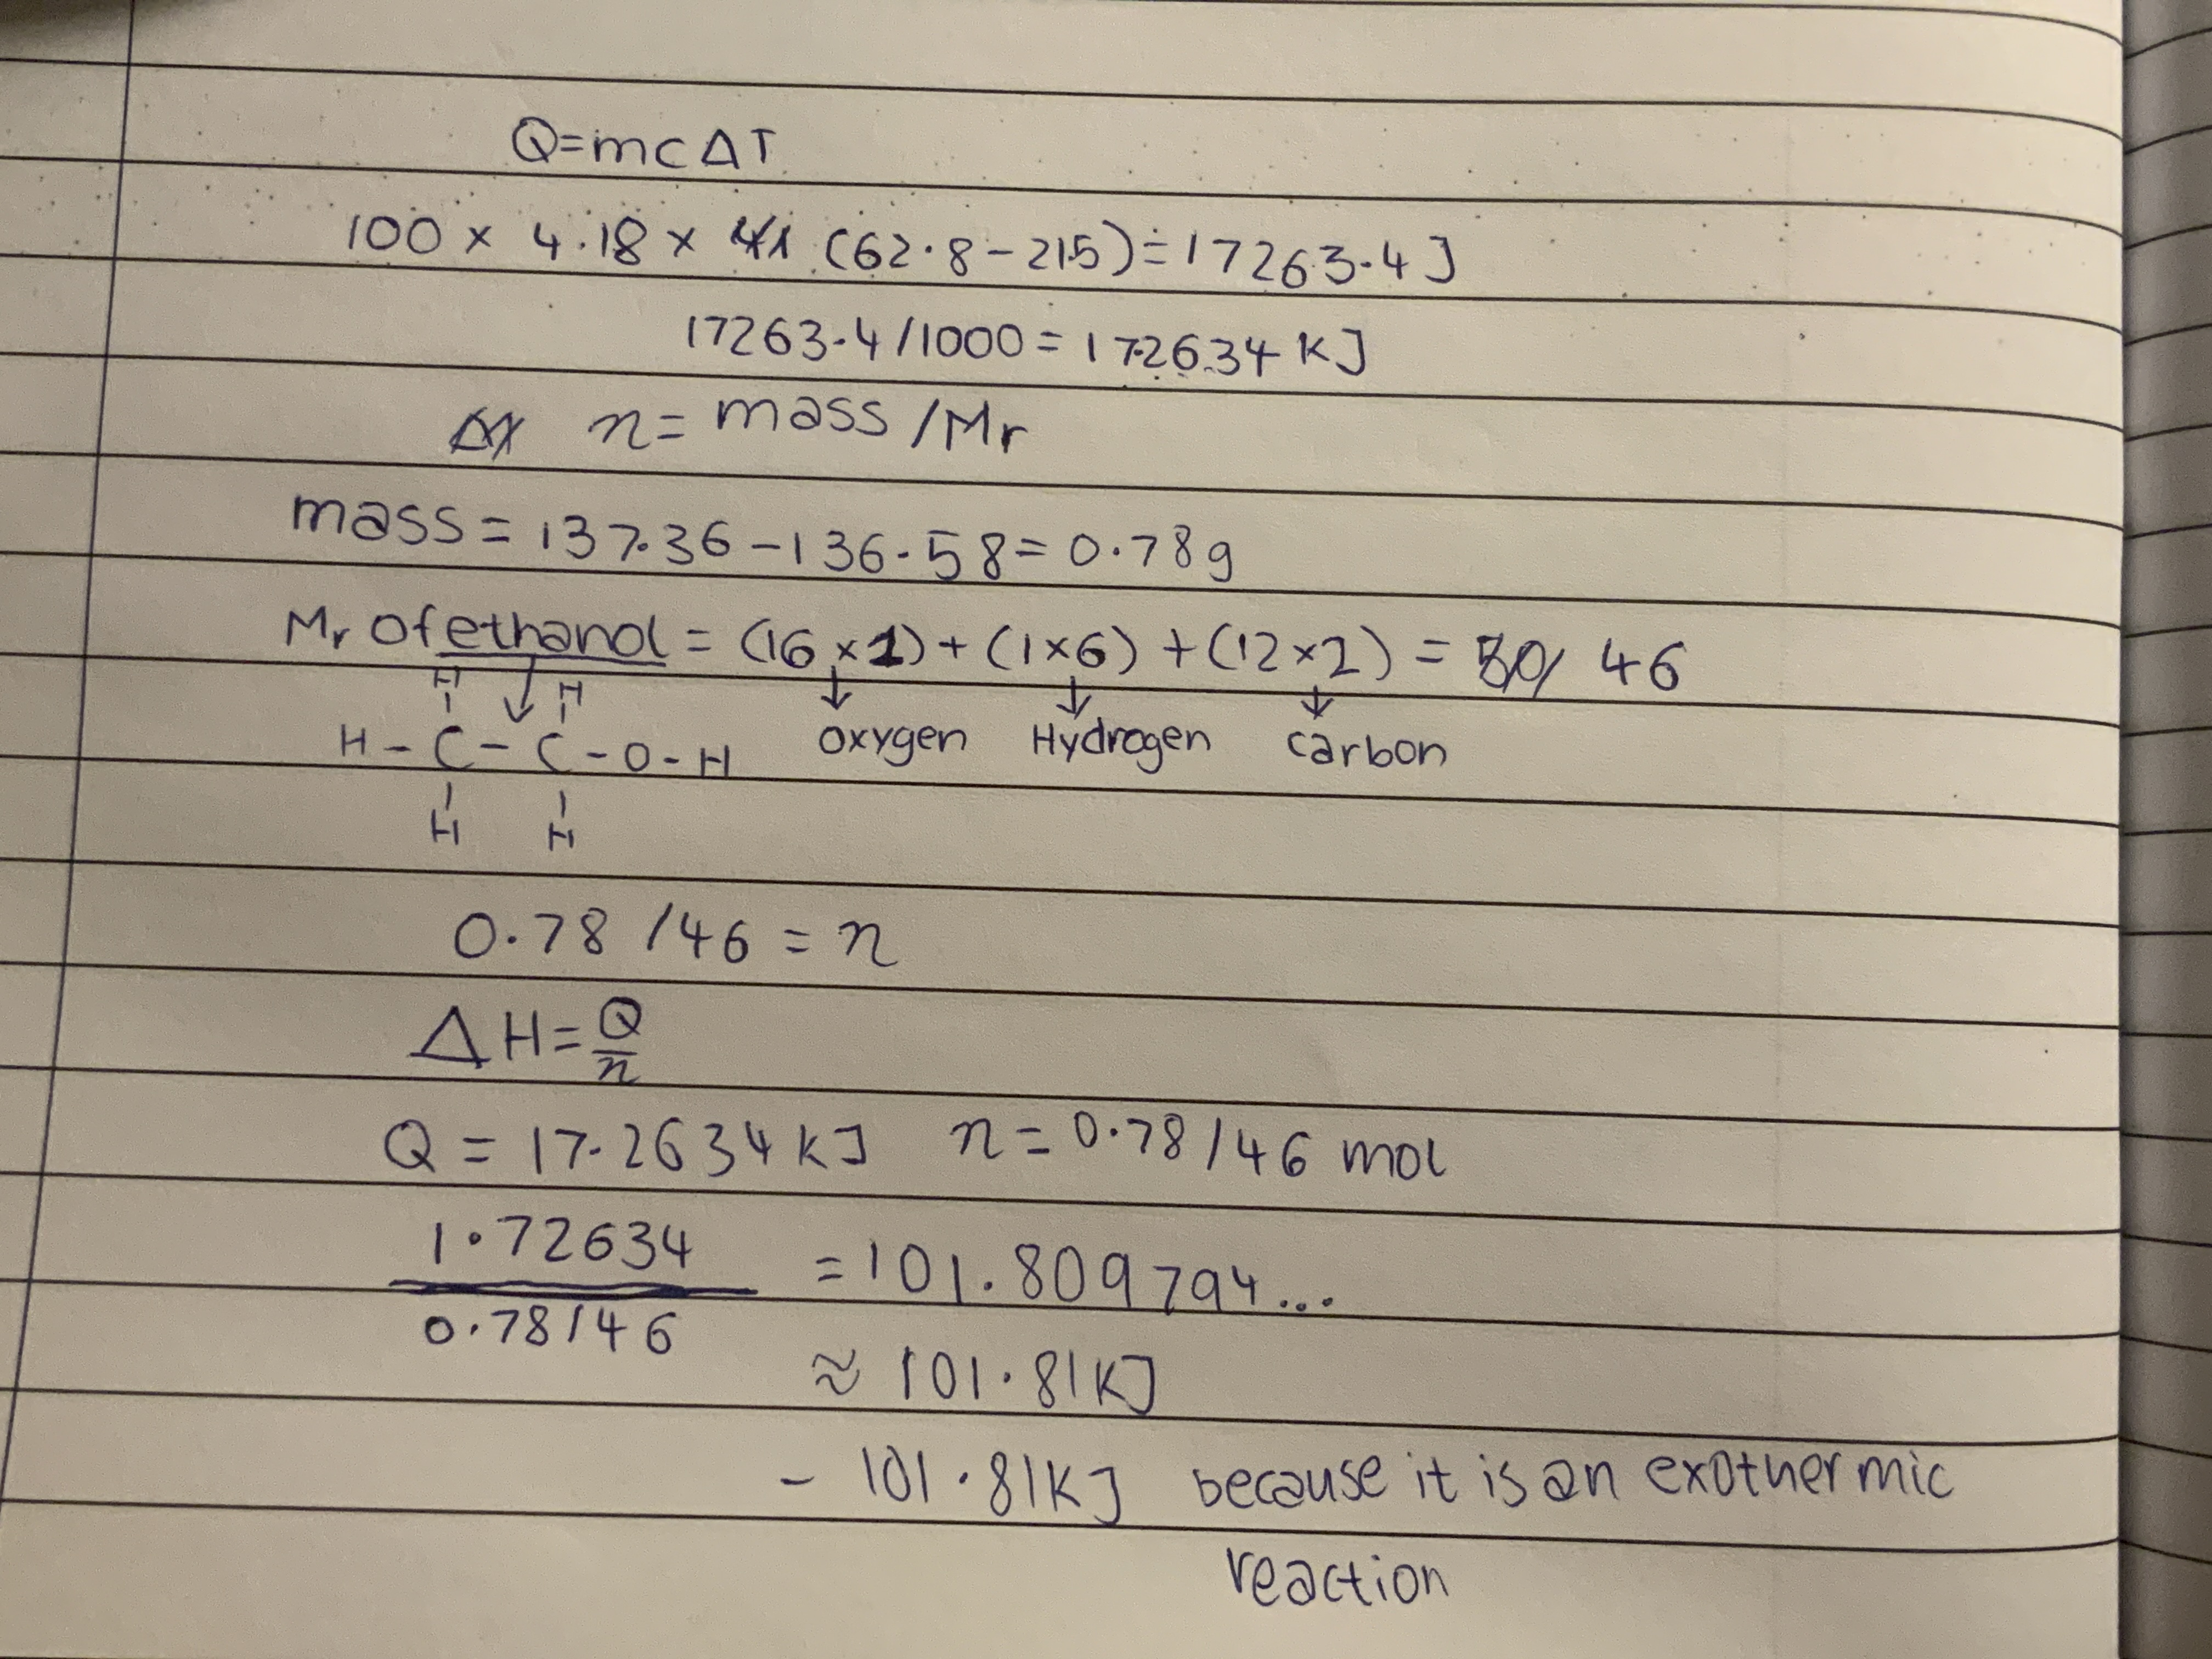 Q=mcΔT
100 × 4.18 × (62.8-21.5)=17263.4J
17263.4/1000=17.2634KJ
n=mass/Mr
mass=137.36-136.58=0.78g
Mr of ethanol=(16×1)+(1×6)+(12×2)= 46
H H
H-C-C-O-H oxygen Hydrogen carbon
H H
0.78/46=n
ΔH=Q/n
Q=17.2634KJ n=0.78/46 mol
1.72634
0.78/46
=101.809794...
≈101.81KJ
-101.81KJ because it is an exothermic
reaction